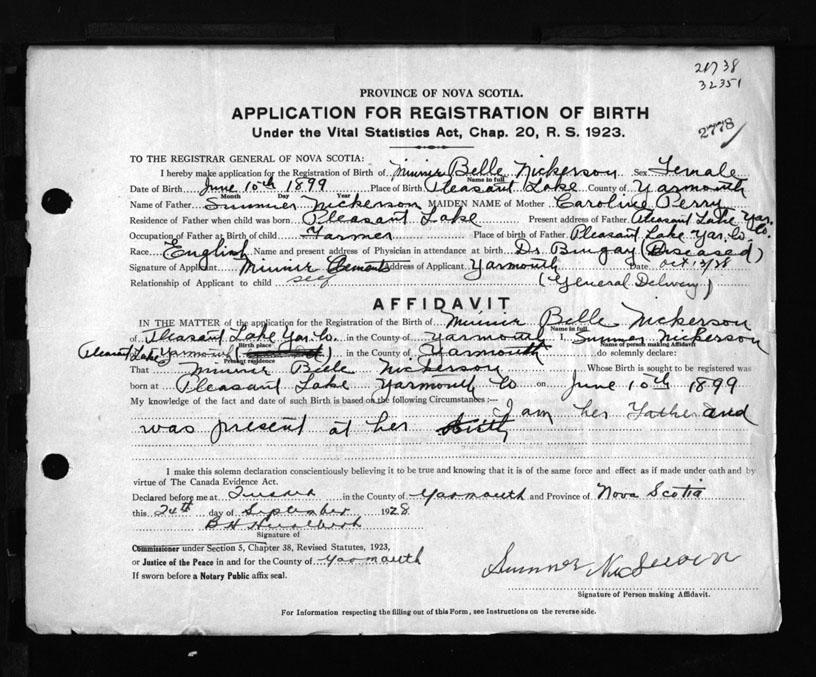 21738
32351
2778
PROVINCE OF NOVA SCOTIA.
APPLICATION FOR REGISTRATION OF BIRTH
Under the Vital Statistics Act, Chap. 20, R. S. 1923.
TO THE REGISTRAR GENERAL OF NOVA SCOTIA:
I hereby make application for the Registration of Birth of Minnie Belle Nickerson Sex Female
Name in full
Date of Birth June 10th 1899 Place of Birth Pleasant Lake County of Yarmouth
Month Day Year
Name of Father Sumner Nickerson MAIDEN NAME of Mother Caroline Perry
Residence of Father when child was born Pleasant Lake Present address of Father Pleasant Lake Yar. Co.
Occupation of Father at Birth of child Farmer Place of birth of Father Pleasant Lake Yar. Co.
Race English Name and present address of Physician in attendance at birth Dr. Bingay (Diseased)
Signature of Applicant Minnie Clements Address of Applicant Yarmouth Date Oct 13/28
Relationship of Applicant to child self (General Delivery)
AFFIDAVIT
IN THE MATTER of the application for the Registration of the Birth of Minnie Belle Nickerson
Name in full
of Pleasant Lake Yar. Co. in the County of Yarmouth I, Sumner Nickerson
Birth place Name of person making Affidavit
of Pleasant Lake Yarmouth in the County of Yarmouth do solemnly declare:
Present residence
That Minnie Belle Nickerson Whose Birth is sought to be registered was
born at Pleasant Lake Yarmouth Co on June 10th 1899
My knowledge of the fact and date of such Birth is based on the following Circumstances :—
I am her Father and
was present at her Birth
I make this solemn declaration conscientiously believing it to be true and knowing that it is of the same force and effect as if made under oath and by
virtue of The Canada Evidence Act.
Declared before me at Tusket in the County of Yarmouth and Province of Nova Scotia
this 24th day of September 1928
B H
Signature of
Commissioner under Section 5, Chapter 38, Revised Statutes, 1923,
or Justice of the Peace in and for the County of Yarmouth
If sworn before a Notary Public affix seal.
Sumner Nickerson
Signature of Person making Affidavit.
For Information respecting the filling out of this Form, see Instructions on the reverse side.